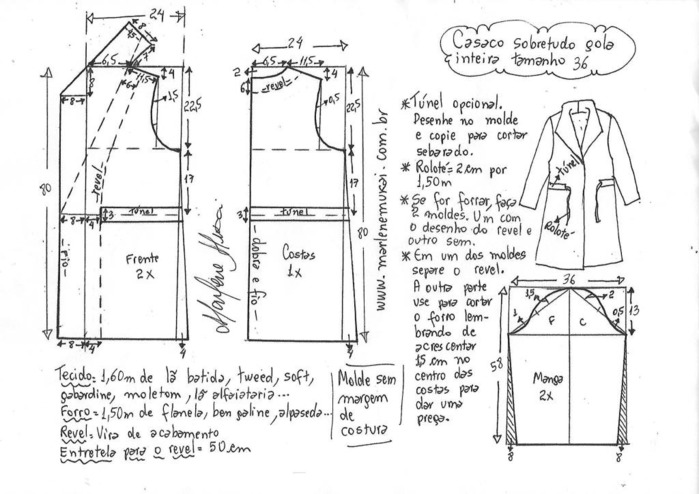 Casaco sobretudo gola
inteira tamanho 36
24
15
8
8
6,5
11,5
6
8
4
1,5
22,5
8
revel
17
80
8
4
3
Túnel
fio
Frente
2x
8
4
4
24
2
6,5
11,5
6
revel
4
0,5
22,5
17
3
túnel
80
dobra e fio
Costas
1x
4
Marlene Mukai
www.marlenemukai.com.br
*Túnel opcional.
Desenhe no molde
e copie para cortar
sebarado.
* Rolotê= 2cm por
1,50m
* Se for forrar, faça
2 moldes. Um com
o desenho do revel e
outro sem.
* Em um dos moldes
separe o revel.
A outra parte
use para cortar
o forro lem-
brando de
acrescentar
15cm no
centro das
costas para
dar uma
prega.
túnel
Rolotê
36
1,5
2
1
F
C
0,5
13
58
Manga
2x
8
8
Tecido= 1,60m de lã batida, tweed, soft,
gabardine, moletom, lã alfaiataria...
Forro = 1,50m de flanela, bengaline, alpaseda...
Revel= Vira de acabamento
Entretela para o revel= 50cm
Molde sem
margem
de
costura